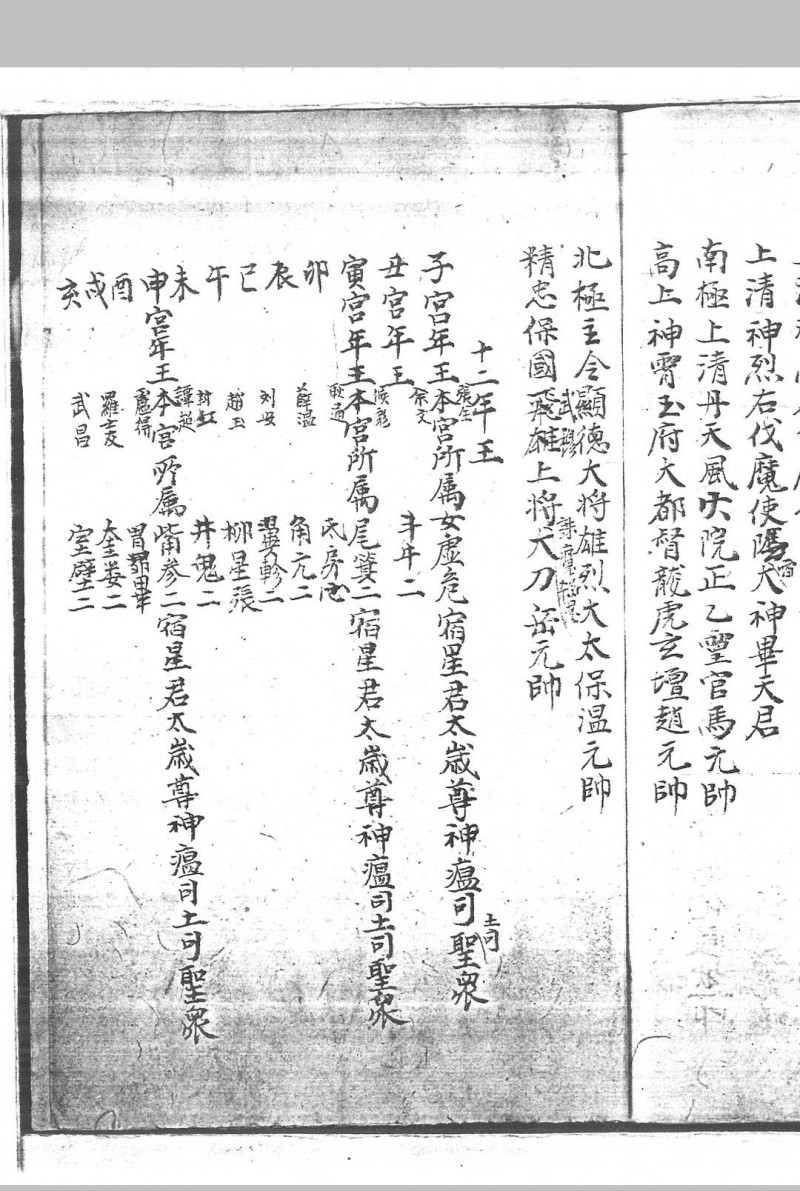 上清神烈右伐魔使陽大神畢天君
南極上清丹天風火院正乙靈官馬元帥
高上神霄玉府大都督龍虎玄壇趙元帥
北極主令顯德大将雄烈大太保温元帥
武穆
精忠保國飛雄上将大刀岳元帥
十二年王
張全
子宮年王本宮所属女虚危宿星君太歲尊神瘟司聖衆
土司
余文
丑宮年王
斗牛二
侯彪
寅宮年王本宮所属尾箕二宿星君太歲尊神瘟司土司聖衆
耿通
卯
氐房心
薛温
辰
角亢二
刘安
巳
翼軫二
趙玉
午
柳星張
封虹
未
井鬼二
譚超
申宮年王本宮所属觜参二宿星君太歲尊神瘟司土司聖衆
盧得
酉
胃昴畢
羅士友
戌
奎娄二
武昌
亥
室壁二